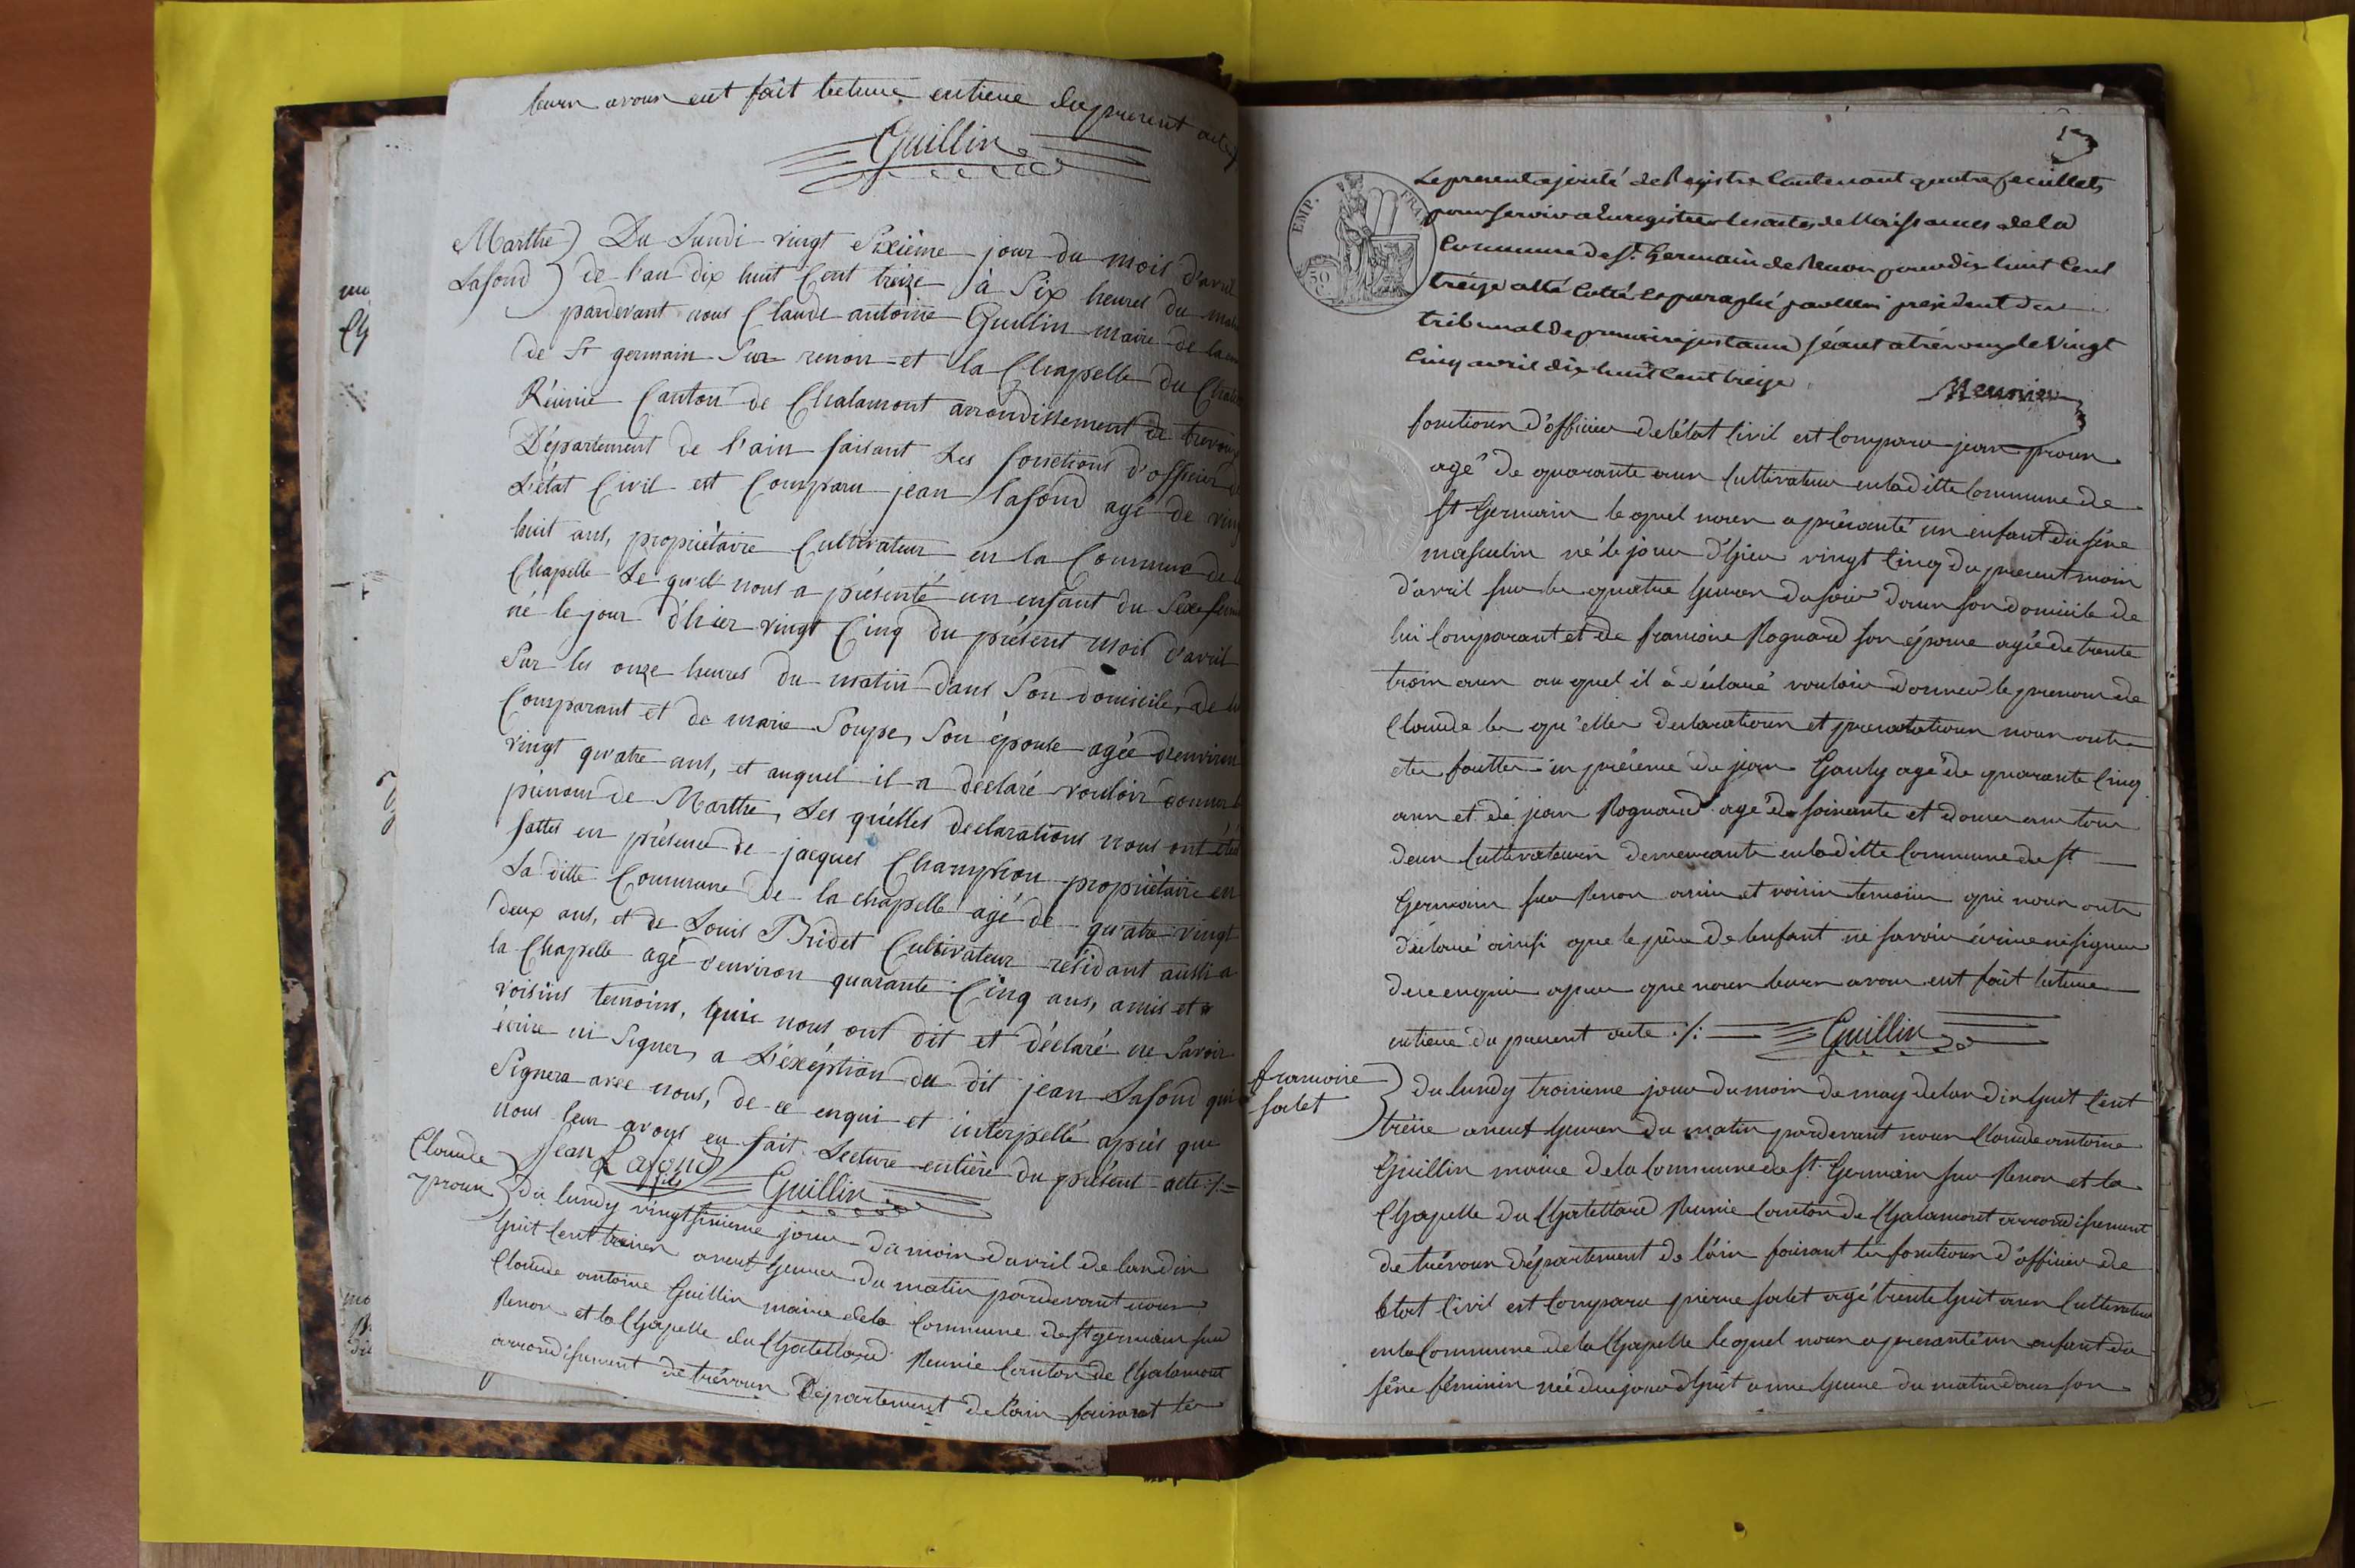 leurs avons eut fait lecture entiere du present acte
Guillin
Marthe Lafond
Du Lundi vingt Sixième jour du mois d'avril
de l'an dix huit Cent treize à Six heures du matin
pardevant nous Claude antoine Guillin maire de la
de St germain Sur renon et la Chapelle du
Réunie Canton de Chalamont arrondissement de trevoux
Département de l'ain faisant Les fonctions d'officier de
L'état Civil est Comparu jean lafond agé de vingt
huit ans, propriétaire Cultivateur en la Commune de
Chapelle Le quel nous a présenté un enfant du Sexe
né le jour d'hier vingt Cinq du présent mois d'avril
Sur les onze heures du matin dans Son domicile, de
Comparant et de marie Soupe, Son épouse agée denviron
vingt qu'atre ans, et auquel il a déclaré vouloir donner
prénom de Marthe, Les qu'elles declarations nous ont été
faittes en présence de jacques Champion propriétaire en
La ditte Commune de la chapelle agé de qu'atre vingt
deux ans, et de Louis Bridet Cultivateur residant aussi a
la Chapelle agé d'environ quarante Cinq ans, amis et
voisins temoins, qui nous ont dit et déclaré ne Savoir
écrire ni Signer, a L'éxéption du dit jean Lafond qui
Signera avec nous, de ce enquis et interpellé après que
nous leur avons eu fait Lecture entière du présent acte ./.
Jean Lafond fils Guillin
Claude proux
du lundy vingt sixieme jour du mois davril de lan dix
huit Cent treize a neuf heures du matin pardevant nous
Claude antoine Guillin maire de la Commune de St germain sur
Renon et la Chapelle du Chatellard Reunie Canton de Chalamont
arrondisement de trévoux Département de l'ain faisant les
Le present ajouté de Registre Contenant quatre feuillets
pour servir a Enregistrer les actes de Naissances de la
Commune de St. Germain de Renon pour dix huit Cent
treize a été Cotté et paraphé par Nous president du
tribunal de premiere instance séant a trévoux le Vingt
Cinq avril dix huit Cent treize
Meunier
fonctions d'officier de l'état Civil est Comparu jean proux
agé de quarante ans Cultivateur en la ditte Commune de
St Germain le quel nous a présenté un enfant du sexe
masculin né le jour d'hier vingt Cinq du present mois
d'avril sur les quatre heures du soir dans son domicile de
lui Comparant et de francoise Rognard son épouse agée de trente
trois ans au quel il à déclaré vouloir donner le prenom de
Claude les qu'elles declarations et presentations nous ont
etes faittes en présence de jean Gauly agé de quarante Cinq
ans et de jean Rognard agé de soixante et douze ans tous
deux Cultivateurs demeurants en la ditte Commune de St
Germain sur Renon amis et voisins temoins qui nous ont
déclaré ainsi que le père de lenfant ne savoir écrire ni signer
de ce enquis apres que nous leurs avons eut fait lecture
entiere du present acte ./. Guillin
francoise
du lundy troisieme jour du mois de may de lan dix huit Cent
treize a neuf heures du matin pardevant nous Claude antoine
Guillin maire de la Commune de St. Germain sur Renon et la
Chapelle du Chatellard Reunie Canton de Chalamont arrondisement
de trévoux département de l'ain faisant les fonctions d'officier de
l'etat Civil est Comparu pierre agé trente huit ans Cultivateur
en la Commune de la Chapelle le quel nous a presenté un enfant du
sexe féminin née du jour d'huit a une heure du matin dans son